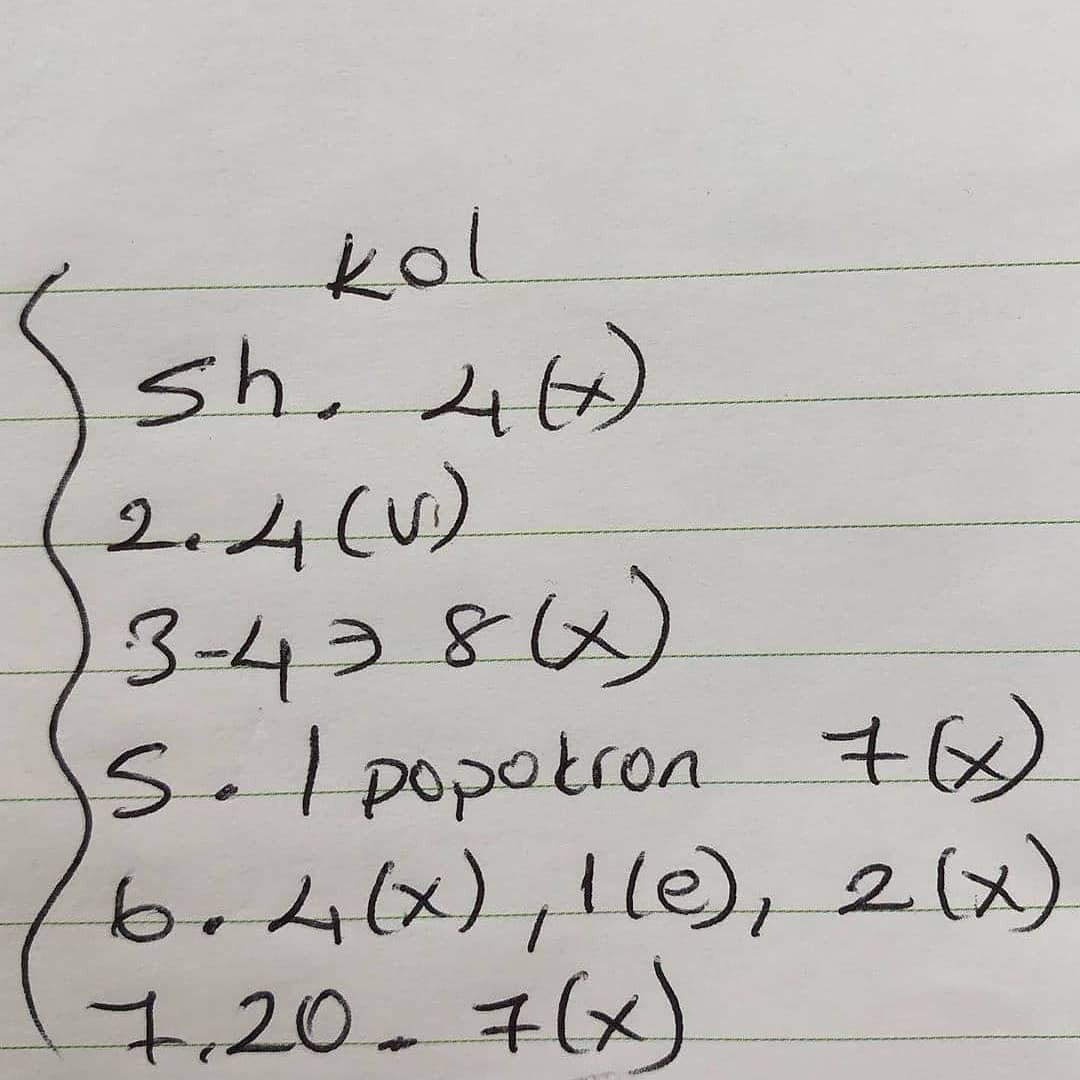 kol
sh. 4(x)
2. 4(v)
3-4 → 8(x)
5. 1 popotron 7(x)
6. 4(x), 1(e), 2(x)
7,20 - 7(x)